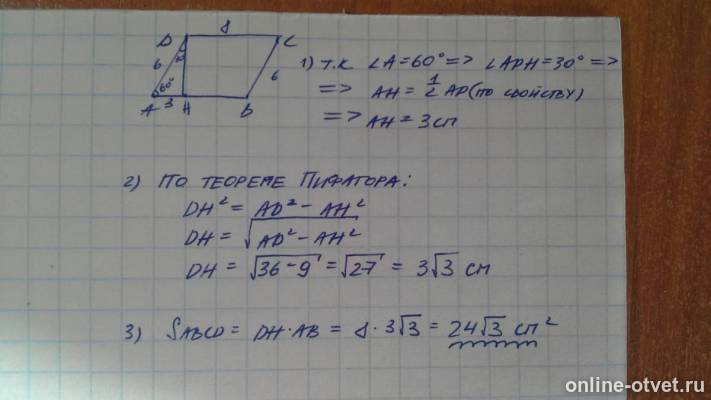 8
D C
6 30° 6
60°
A 3 H B
1) т.к ∠A=60° => ∠ADH=30° =>
=> AH = 1/2 AD (по свойству)
=> AH = 3 см
2) По теореме Пифагора:
DH² = AD² - AH²
DH = √AD² - AH²
DH = √36-9 = √27 = 3√3 см
3) SABCD = DH·AB = 8·3√3 = 24√3 см²
online-otvet.ru